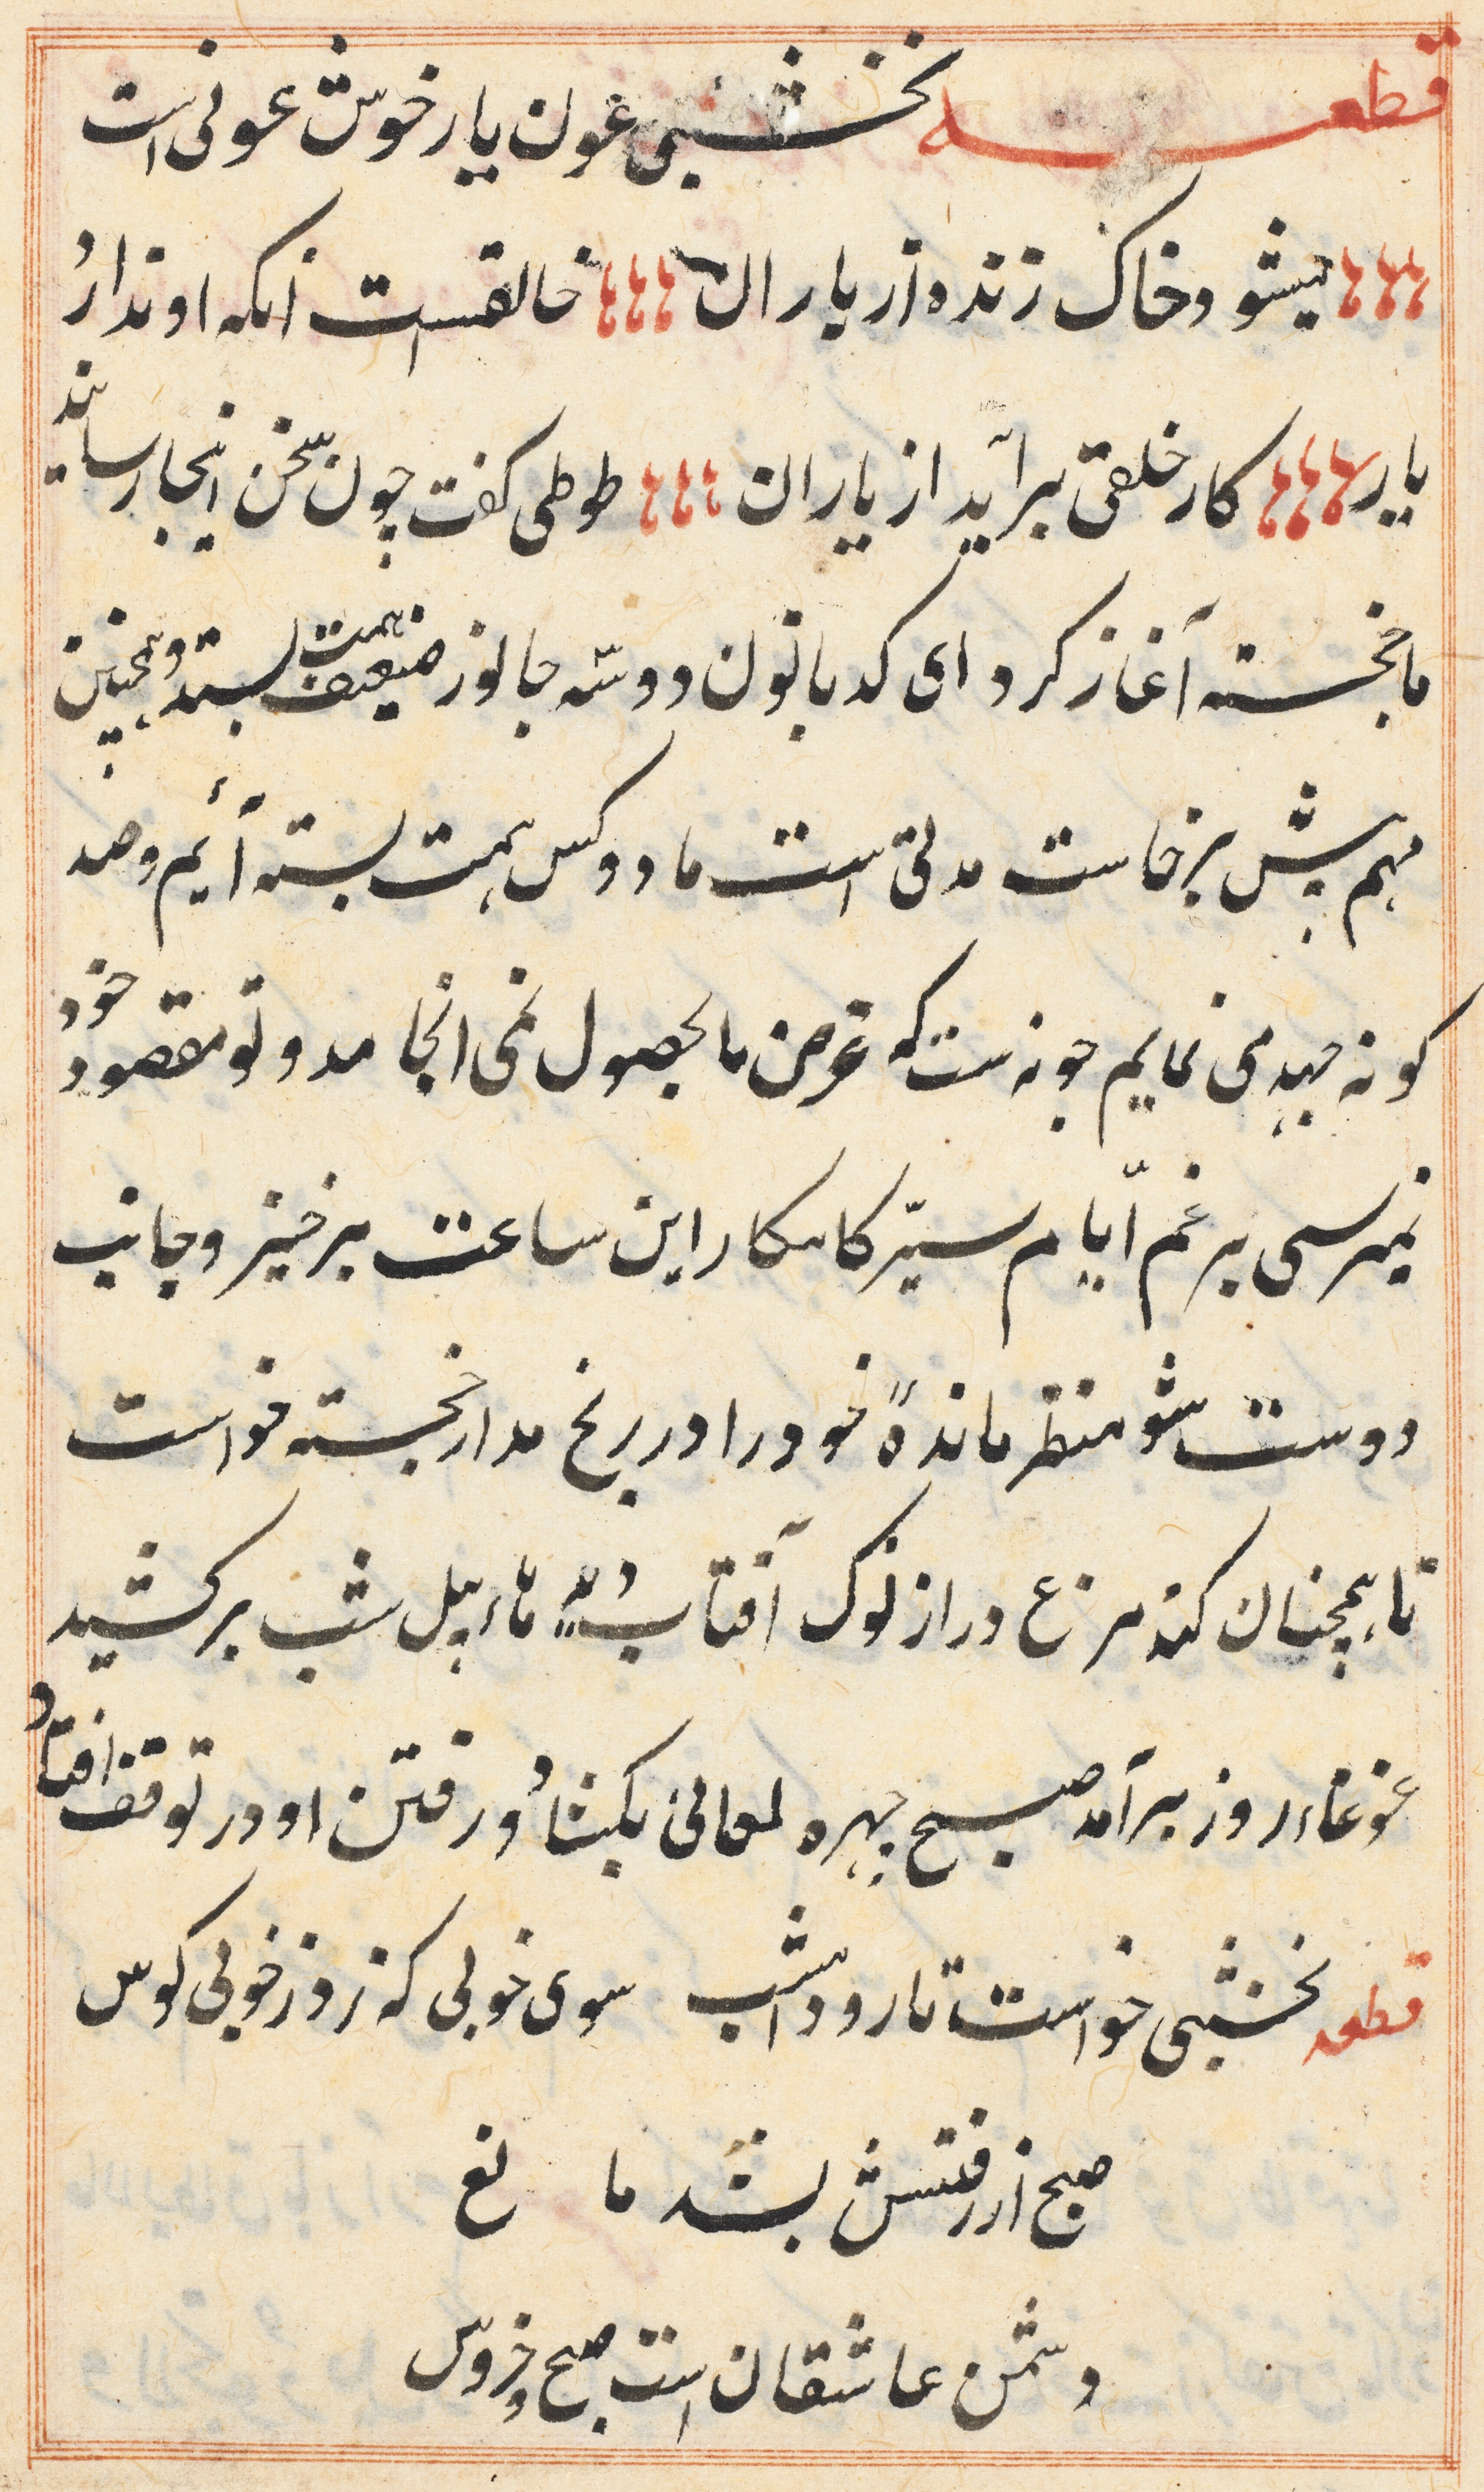 قطعه نخشبی عون یار خوش عونی است
میشود خاک زنده از یاران خالقست آنکه او ندارد
یار کار خلقی برآید از یاران طوطی کفت چون سخن اینجا رسانید
با خجسته آغاز کرد ای کدبانون دو سه جانور ضعیف همت بستند و همچنین
مهم پیش برخاست مدتی است ما دو کس همت بسته آئیم و صد
کونه جهد می نمایم چونست که غرض ما بحصول نمی انجامد و تو مقصود خود
نمیرسی برغم ایام ستیزکار این ساعت برخیز و جانب
دوست شو منتظر ماندهٔ خود را در رنج مدار خجسته خواست
تا همچنان کند مرغ دراز نوک آفتاب ماء پیل شب برکشید
غوغاء روز برآمد صبح چهره لمعانی بکشاد و رفتن او در توقف افتاد
قطعه نخشبی خواست تا رود امشب سوی خوبی که زد ز خوبی کوس
صبح از رفتنش بشد مانع
دشمن عاشقان است صبح و خروس